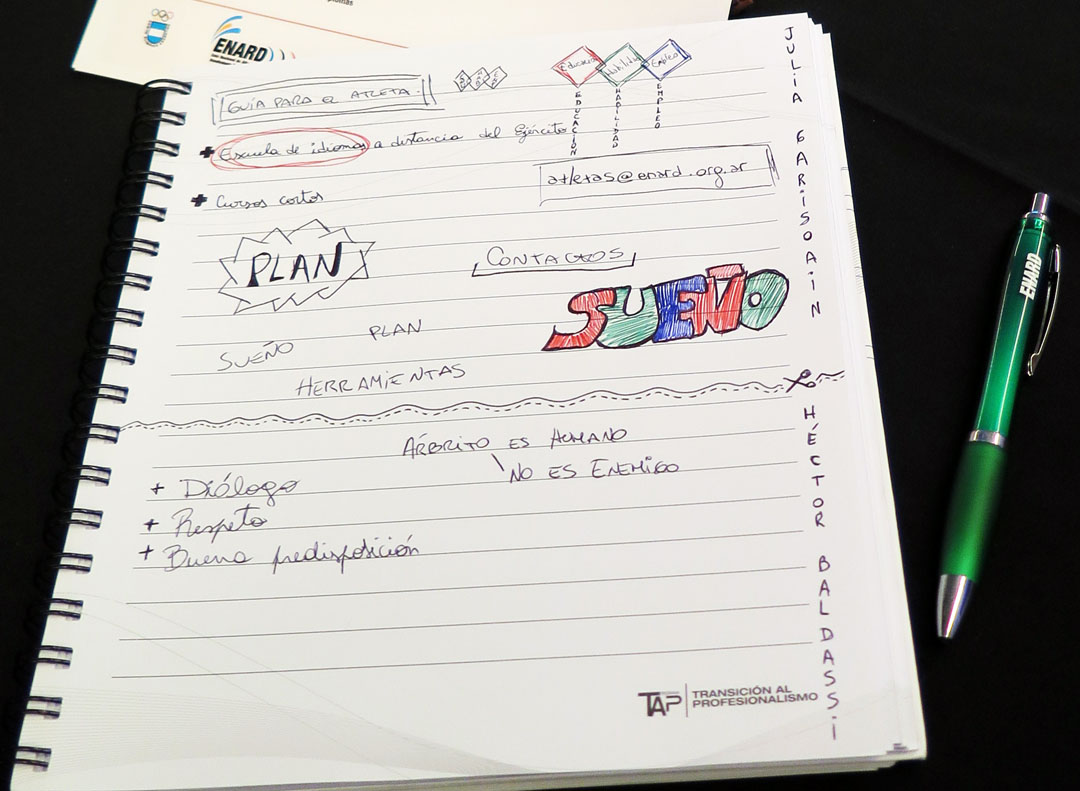 ENARD
GUÍA PARA EL ATLETA.
Educación Habilidad Empleo
EDUCACIÓN
HABILIDAD
EMPLEO
+ Escuela de idiomas a distancia del Ejército
+ Cursos cortos
atletas@enard.org.ar
PLAN
CONTACTOS
SUEÑO
SUEÑO PLAN
HERRAMIENTAS
JULIA GARISOAIN
ÁRBRITO ES HUMANO
NO ES ENEMIGO
+ Diálogo
+ Respeto
+ Buena predisposición
HÉCTOR BALDASSI
TAP TRANSICIÓN AL
PROFESIONALISMO
ENARD